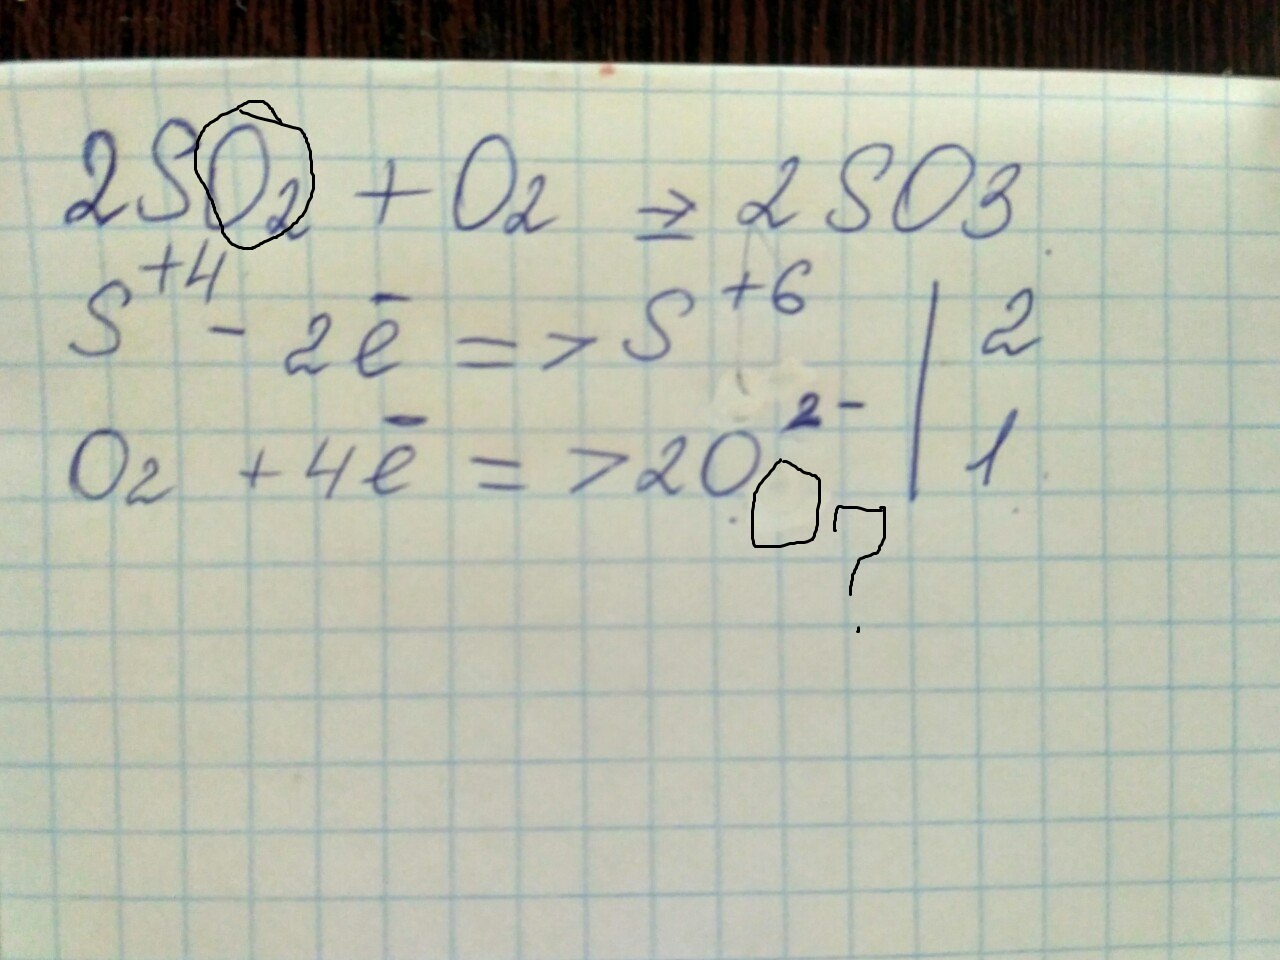 2SO2 + O2 ⇒ 2SO3
S+4 - 2ē => S+6 | 2
O2 + 4ē => 2O2- | 1
?